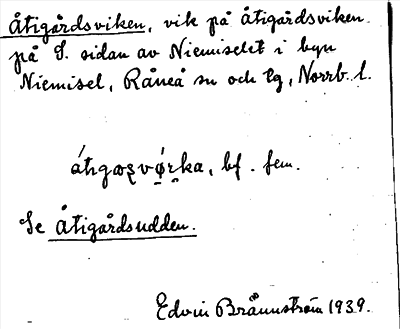 Åtigårdsviken, vik på Åtigårdsviken
på S. sidan av Niemiselet i byn
Niemisel, Råneå sn och lg, Norrb. l.
bf. fem.
Se Åtigårdsudden.
Edvin Brännström 1939.